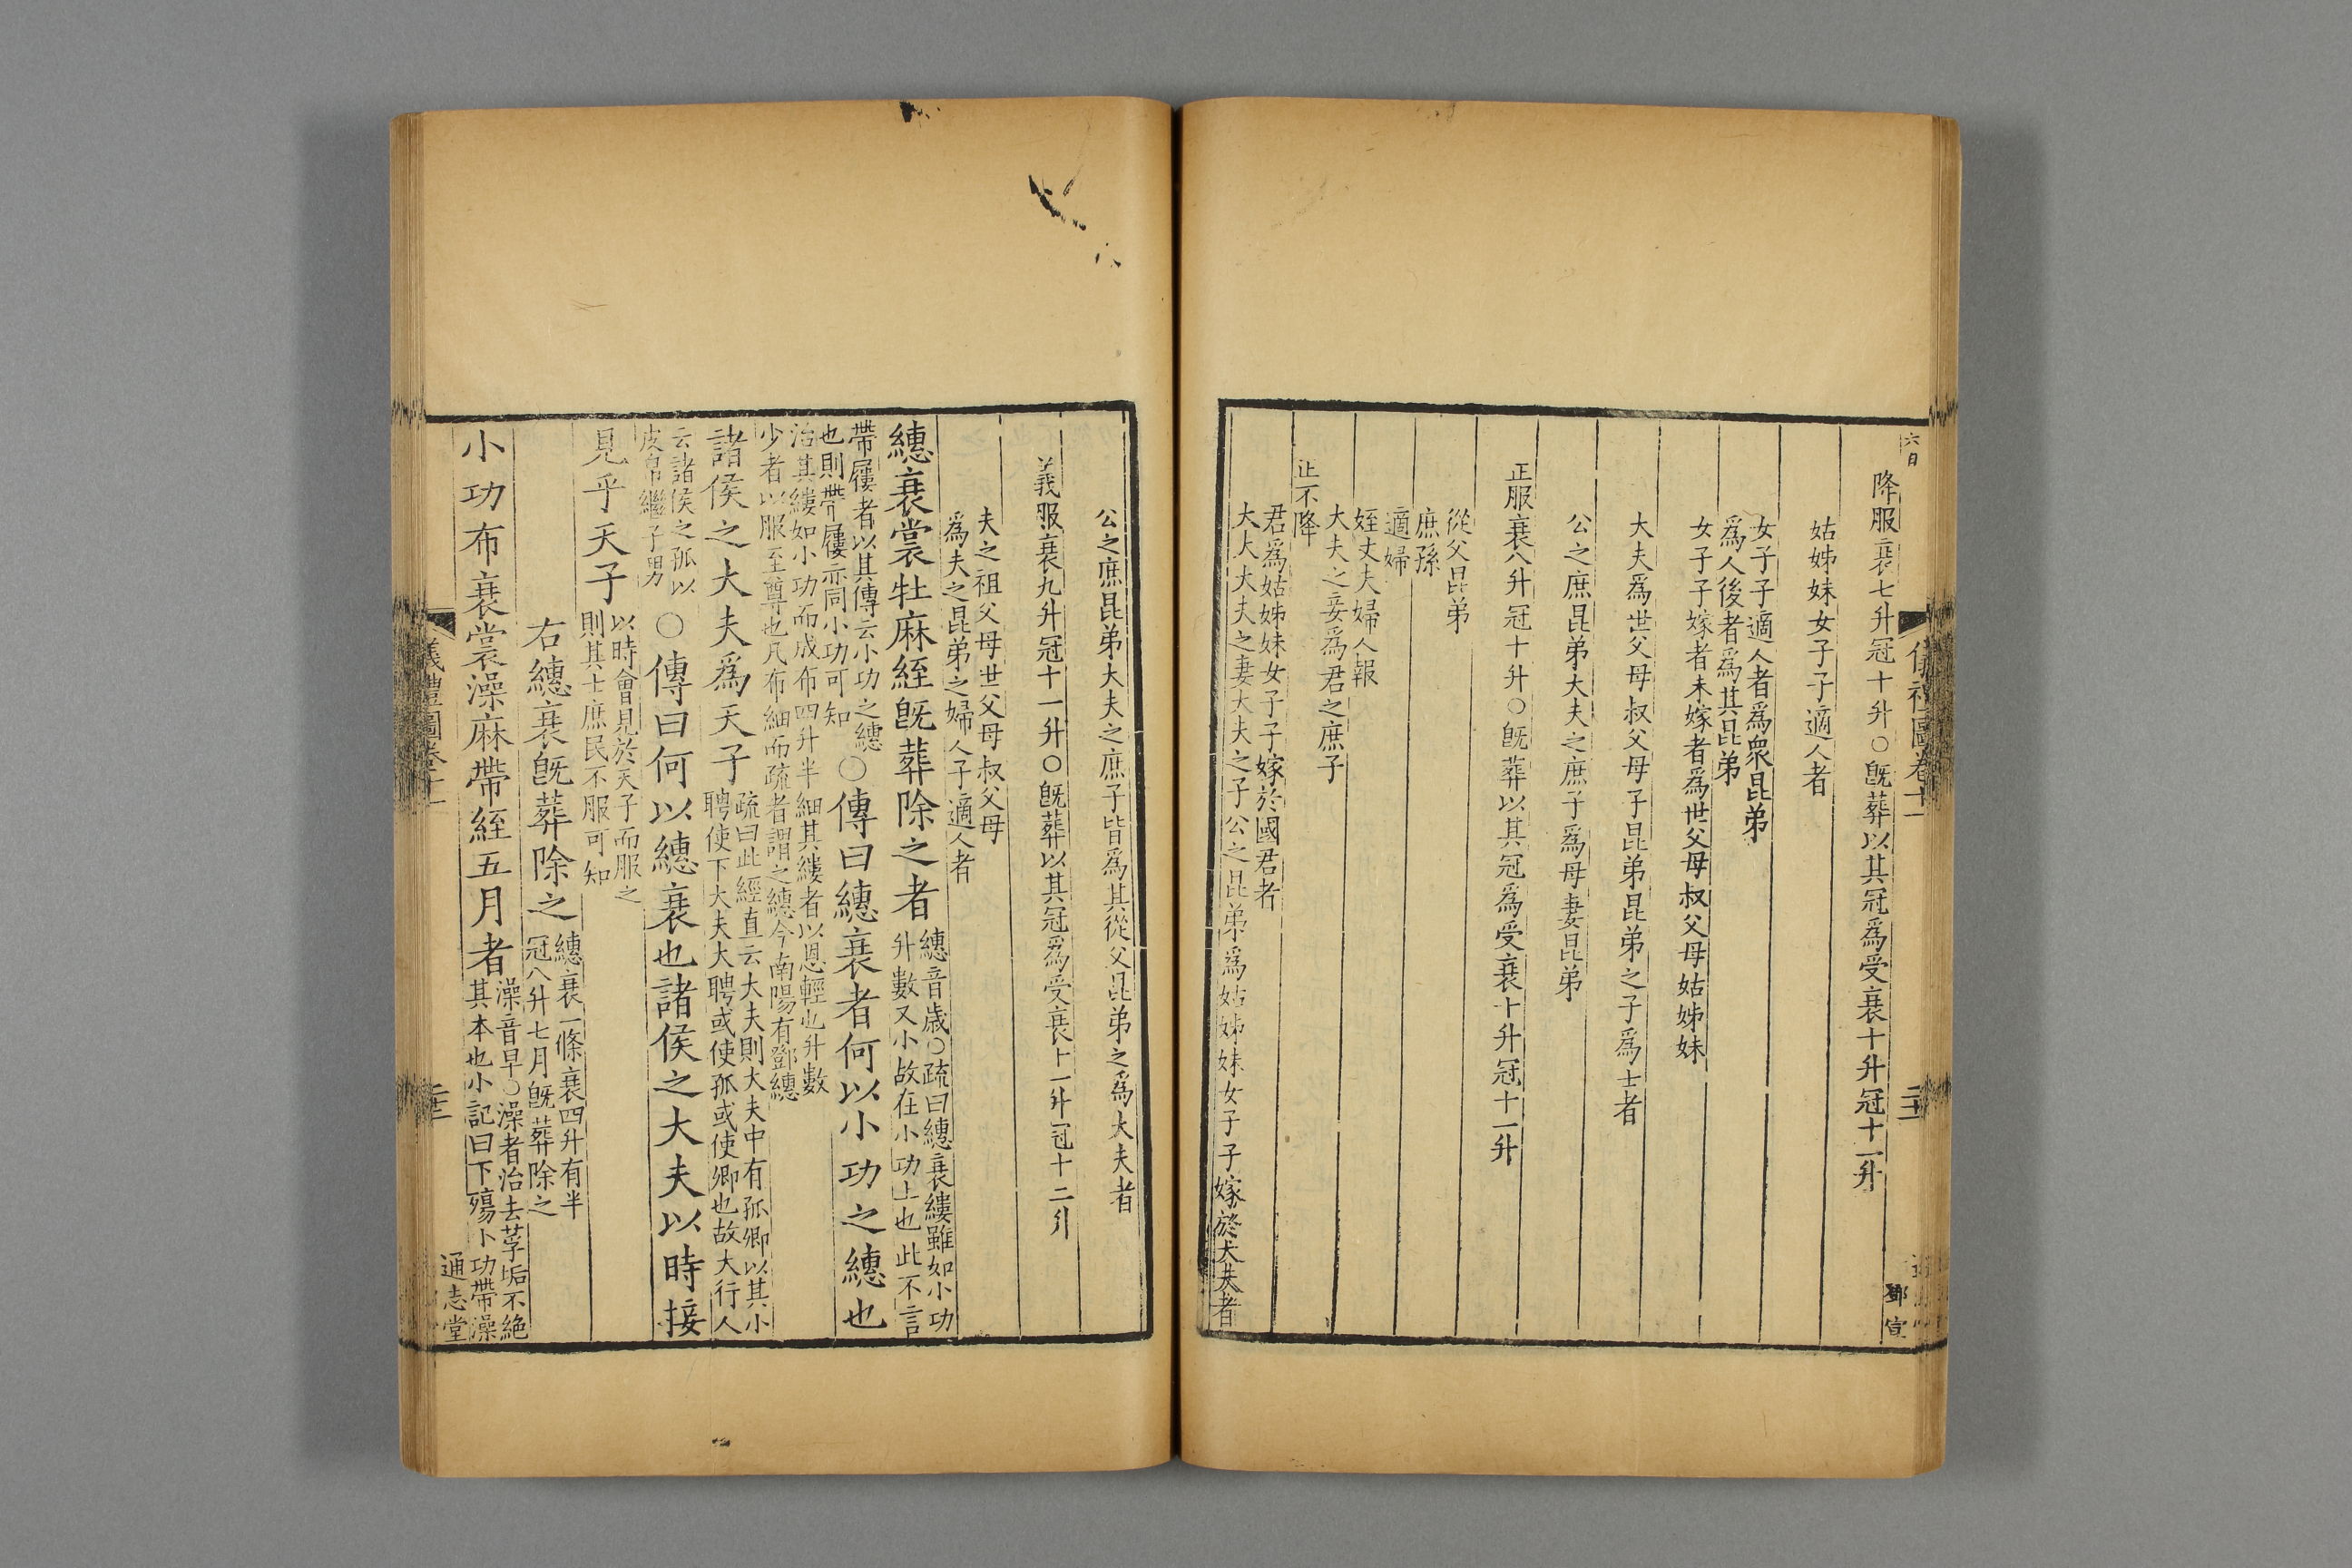 六日
儀禮圖卷十一
鄧宣
降服衰七升冠十升○旣葬以其冠爲受衰十升冠十一升
姑姊妹女子子適人者
女子子適人者爲衆昆弟
爲人後者爲其昆弟
女子子嫁者未嫁者爲世父母叔父母姑姊妹
大夫爲世父母叔父母子昆弟昆弟之子爲士者
公之庶昆弟大夫之庶子爲母妻昆弟
正服衰八升冠十升○旣葬以其冠爲受衰十升冠十一升
從父昆弟
庶孫
適婦
姪丈夫婦人報
大夫之妾爲君之庶子
正不降
君爲姑姊妹女子子嫁於國君者
大夫大夫之妻大夫之子公之昆弟爲姑姊妹女子子嫁於大夫者
公之庶昆弟大夫之庶子皆爲其從父昆弟之爲大夫者
義服衰九升冠十一升○旣葬以其冠爲受衰十一升冠十二升
夫之祖父母世父母叔父母
爲夫之昆弟之婦人子適人者
繐衰裳牡麻絰旣葬除之者
繐音歲○疏曰繐衰縷雖如小功
升數又小故在小功上也此不言
帶屨者以其傳云小功之繐
也則帶屨亦同小功可知
○傳曰繐衰者何以小功之繐也
治其縷如小功而成布四升半細其縷者以恩輕也升數
少者以服至尊也凡布細而疏者謂之繐今南陽有鄧繐
諸侯之大夫爲天子
疏曰此經直云大夫則大夫中有孤卿以其小
聘使下大夫大聘或使孤或使卿也故大行人
云諸侯之孤以
皮帛繼子男
○傳曰何以繐衰也諸侯之大夫以時接
見乎天子
以時會見於天子而服之
則其士庶民不服可知
右繐衰旣葬除之
繐衰一條衰四升有半
冠八升七月旣葬除之
小功布衰裳澡麻帶絰五月者
澡音早○澡者治去莩垢不絶
其本也小記曰下殤小功帶澡
儀禮圖卷十一
通志堂